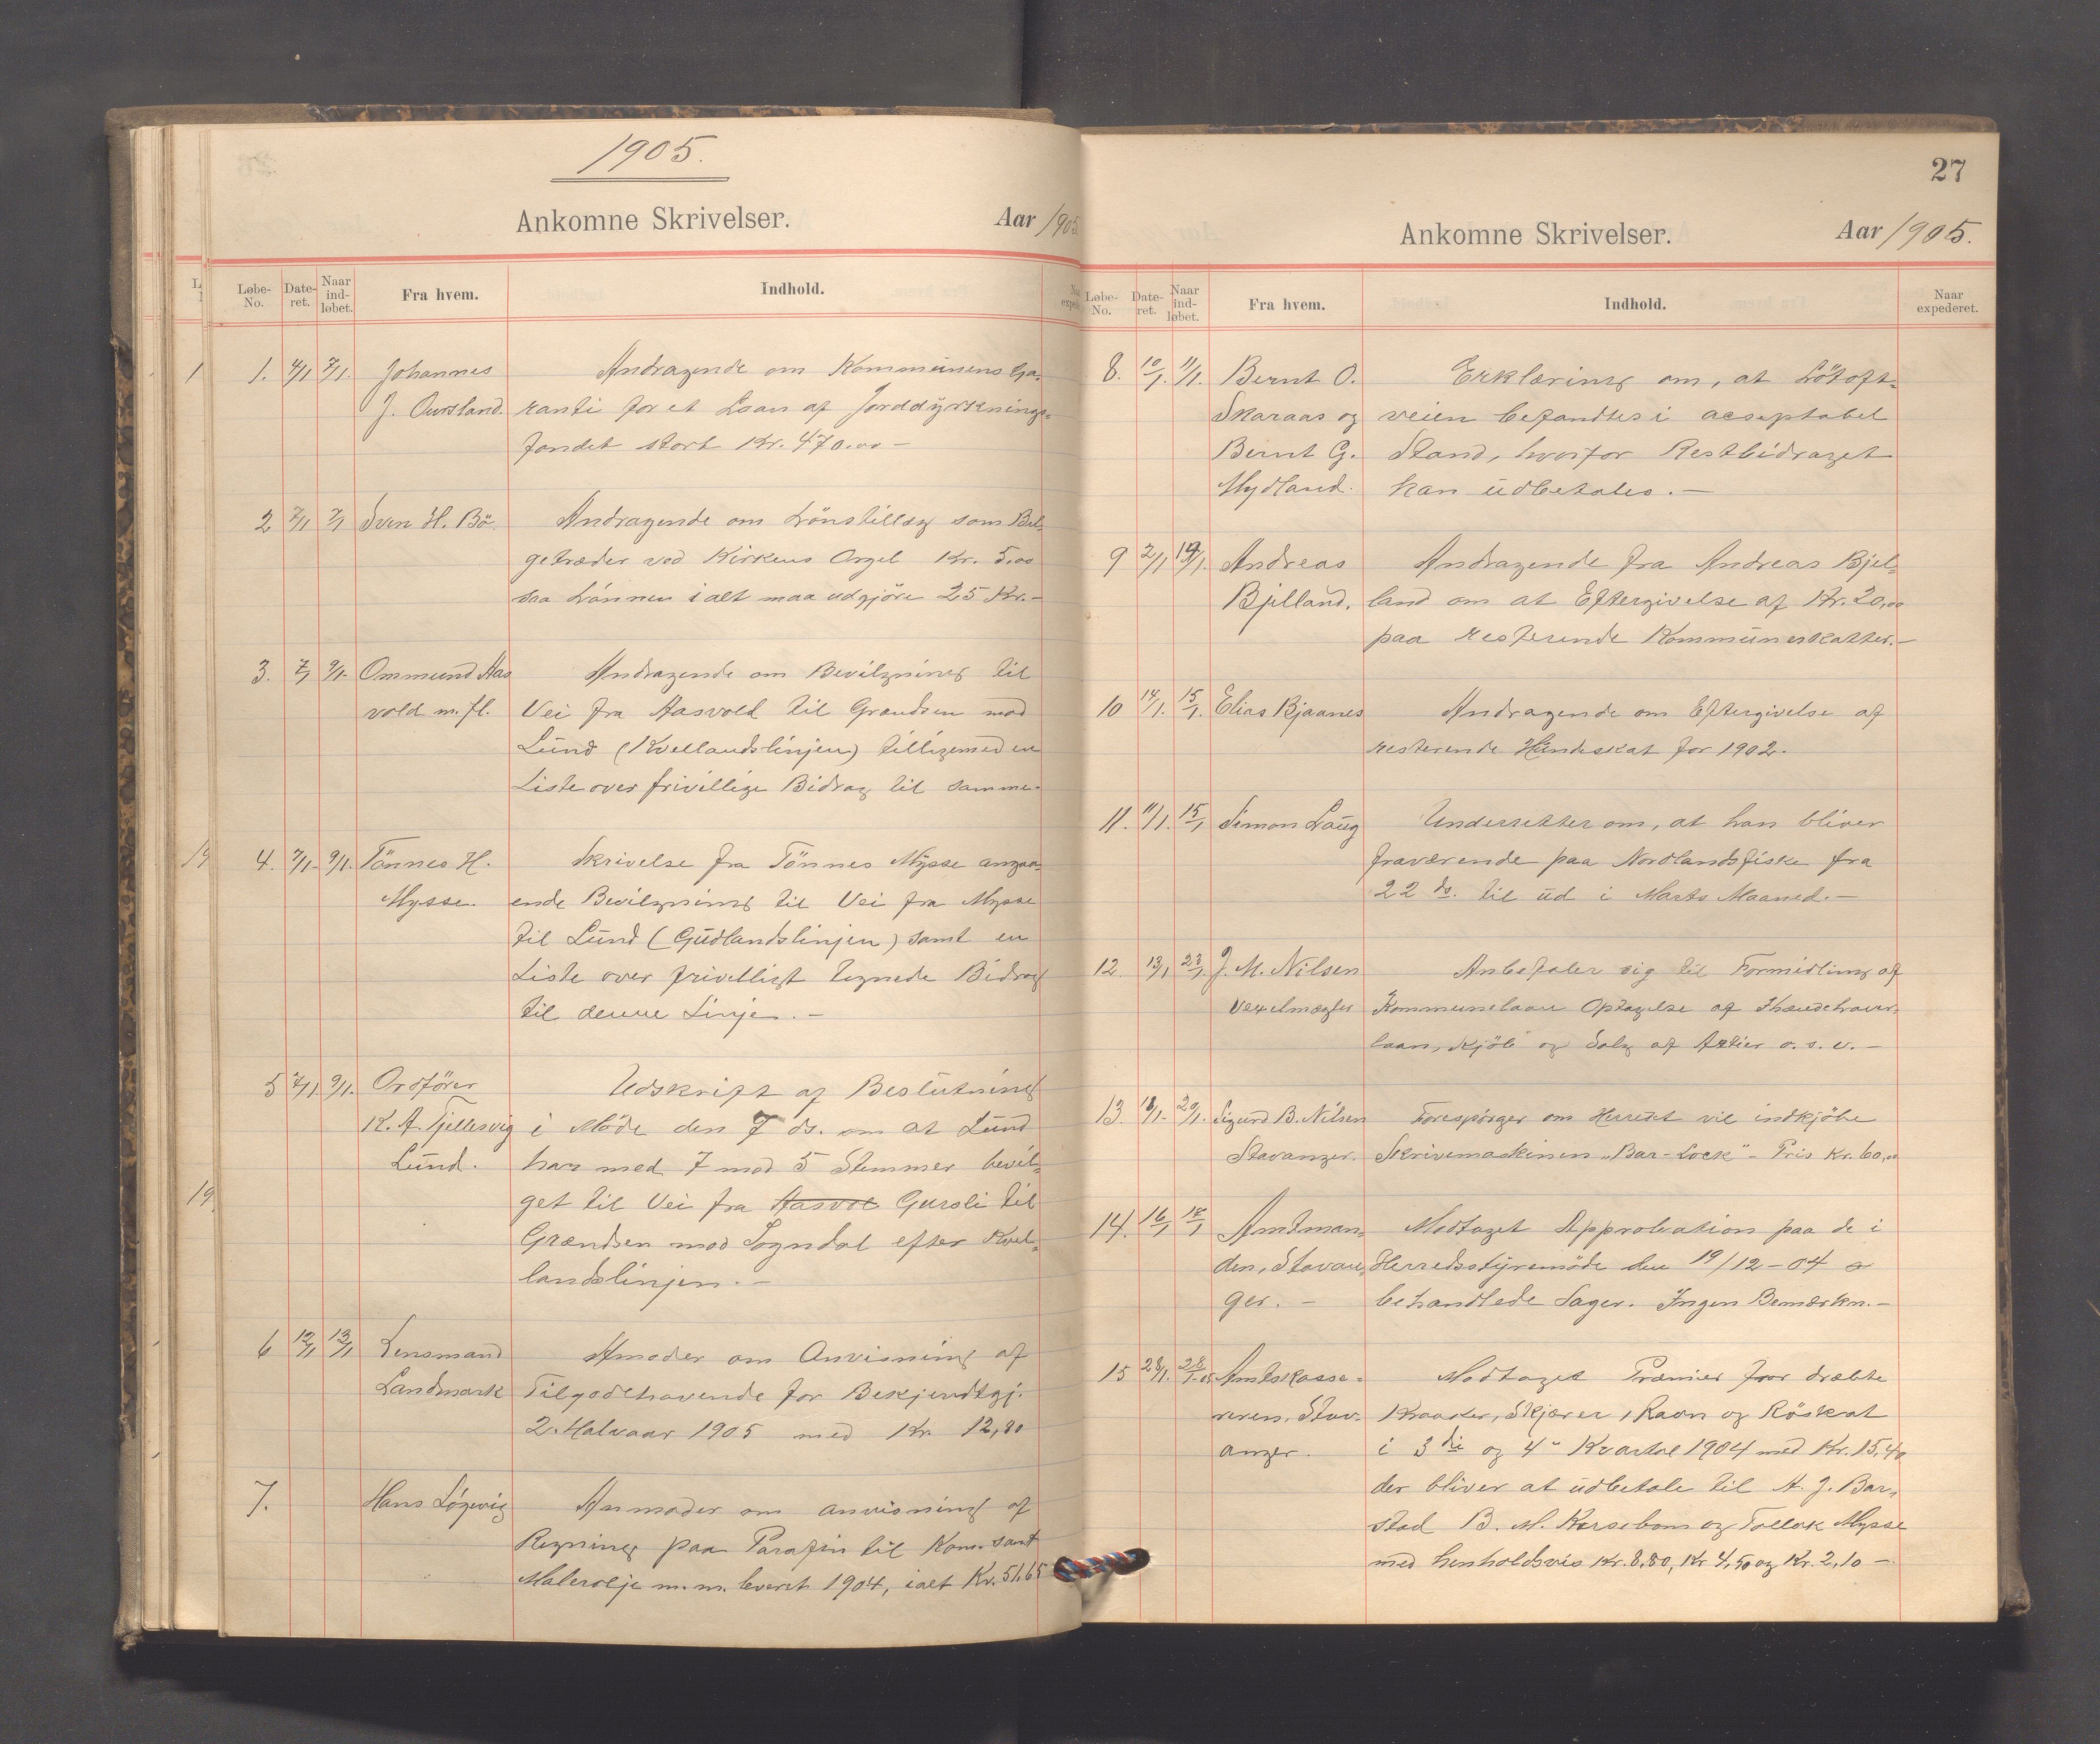 1905.
Ankomne Skrivelser. Aar 1905.
Løbe-No. Date-ret. Naar ind-løbet. Fra hvem. Indhold.
1. 4/1 7/1. Johannes Andragende om Kommunens Ga-
J. Oursland. ranti for et Laan af Jorddyrknings-
fondet stort Kr. 470.00 –
2 7/1 7/1 Sven H. Bö Andragende om Lönstillæg som Bel-
getræder ved Kirkens Orgel Kr. 5.00
saa Lönnen i alt maa udgjöre 25 Kr. –
3. 7/1 9/1- Ommund Aas Andragende om Bevilgning til
vold m. fl. Vei fra Aasvold til Grændsen mod
Lund (Kvellandslinjen) tilligemed en
Liste over frivillige Bidrag til samme.
4. 7/1- 9/1. Tönnes H. Skrivelse fra Tönnes Mysse angaa-
Mysse. ende Bevilgning til Vei fra Mysse
til Lund (Gudlandslinjen) samt en
Liste over frivilligt tegnede Bidrag
til denne Linje. –
5 7/1. 9/1. Ordförer Udskrift af Beslutning
K. A. Tjellesvig i Möde den 7 ds. om at Lund
Lund. har med 7 mod 5 Stemmer bevil-
get til Vei fra Aasvol Gursli til
Grændsen mod Sogndal efter Kvel-
landslinjen. –
6 12/1 13/1 Lensmand Amoder om Anvisning af
Landmark Tilgodehavende for Bekjendtgj.
2. Halvaar 1905 med Kr. 12,80
7. Hans Lögevig Anmoder om anvisning af
Regning paa Parafin til Kom. samt
Malerolje m. m. leveret 1904, ialt Kr. 51,65
27
Ankomne Skrivelser. Aar 1905.
Løbe-No. Date-ret. Naar ind-løbet. Fra hvem. Indhold. Naar expederet.
8. 10/1. 11/1. Bernt O. Erklæring om, at Lötoft-
Skaraas og veien befandtes i acseptabel
Bernt G. Stand, hvorfor Restbidraget
Mydland. kan udbetales. –
9 2/1 Andreas Andragende fra Andreas Bjel-
Bjelland. land om at Eftergivelse af Kr. 20,00
paa resterende Kommuneskatter. –
10 14/1. 15/1. Elias Bjaanes Andragende om Eftergivelse af
resterende Hundeskat for 1902.
11. 11/1. 15/1 Simon Laug Underretter om, at han bliver
fraværende paa Nordlandsfiske fra
22 ds. til ud i Marts Maaned. –
12. 13/1 23/1. J. M. Nilsen Anbefaler sig til Formidling af
Vexelmægler Kommunelaan Optagelse af Ihændehaver-
laan, Kjöb og Salg af Aktier o. s. v. –
13. 18/1- 20/1. Sigurd B. Nilsen Forespörger om Herredet vil indkjöbe
Stavanger. Skrivemaskinen „Bar-Lock" – Pris Kr. 60,00
14. 16/1 18/1 Amtman- Modtaget Approbation paa de i
den, Stavan- Herredsstyremöde den 19/12 – 04
ger. – behandlede Sager. Ingen Bemærkn. –
15 28/1. Amtskasse- Modtaget Præmier for dræbte
reren, Stav- Kraaker, Skjærer, Ravn og Röskat
anger. i 3die og 4" Kvartal 1904 med Kr. 15,40
der bliver at udbetale til A. J. Bar-
stad B. M. Korsebom og Tollak Mysse
med henholdsvis Kr. 8,80, Kr 4,50 og Kr. 2,10 –